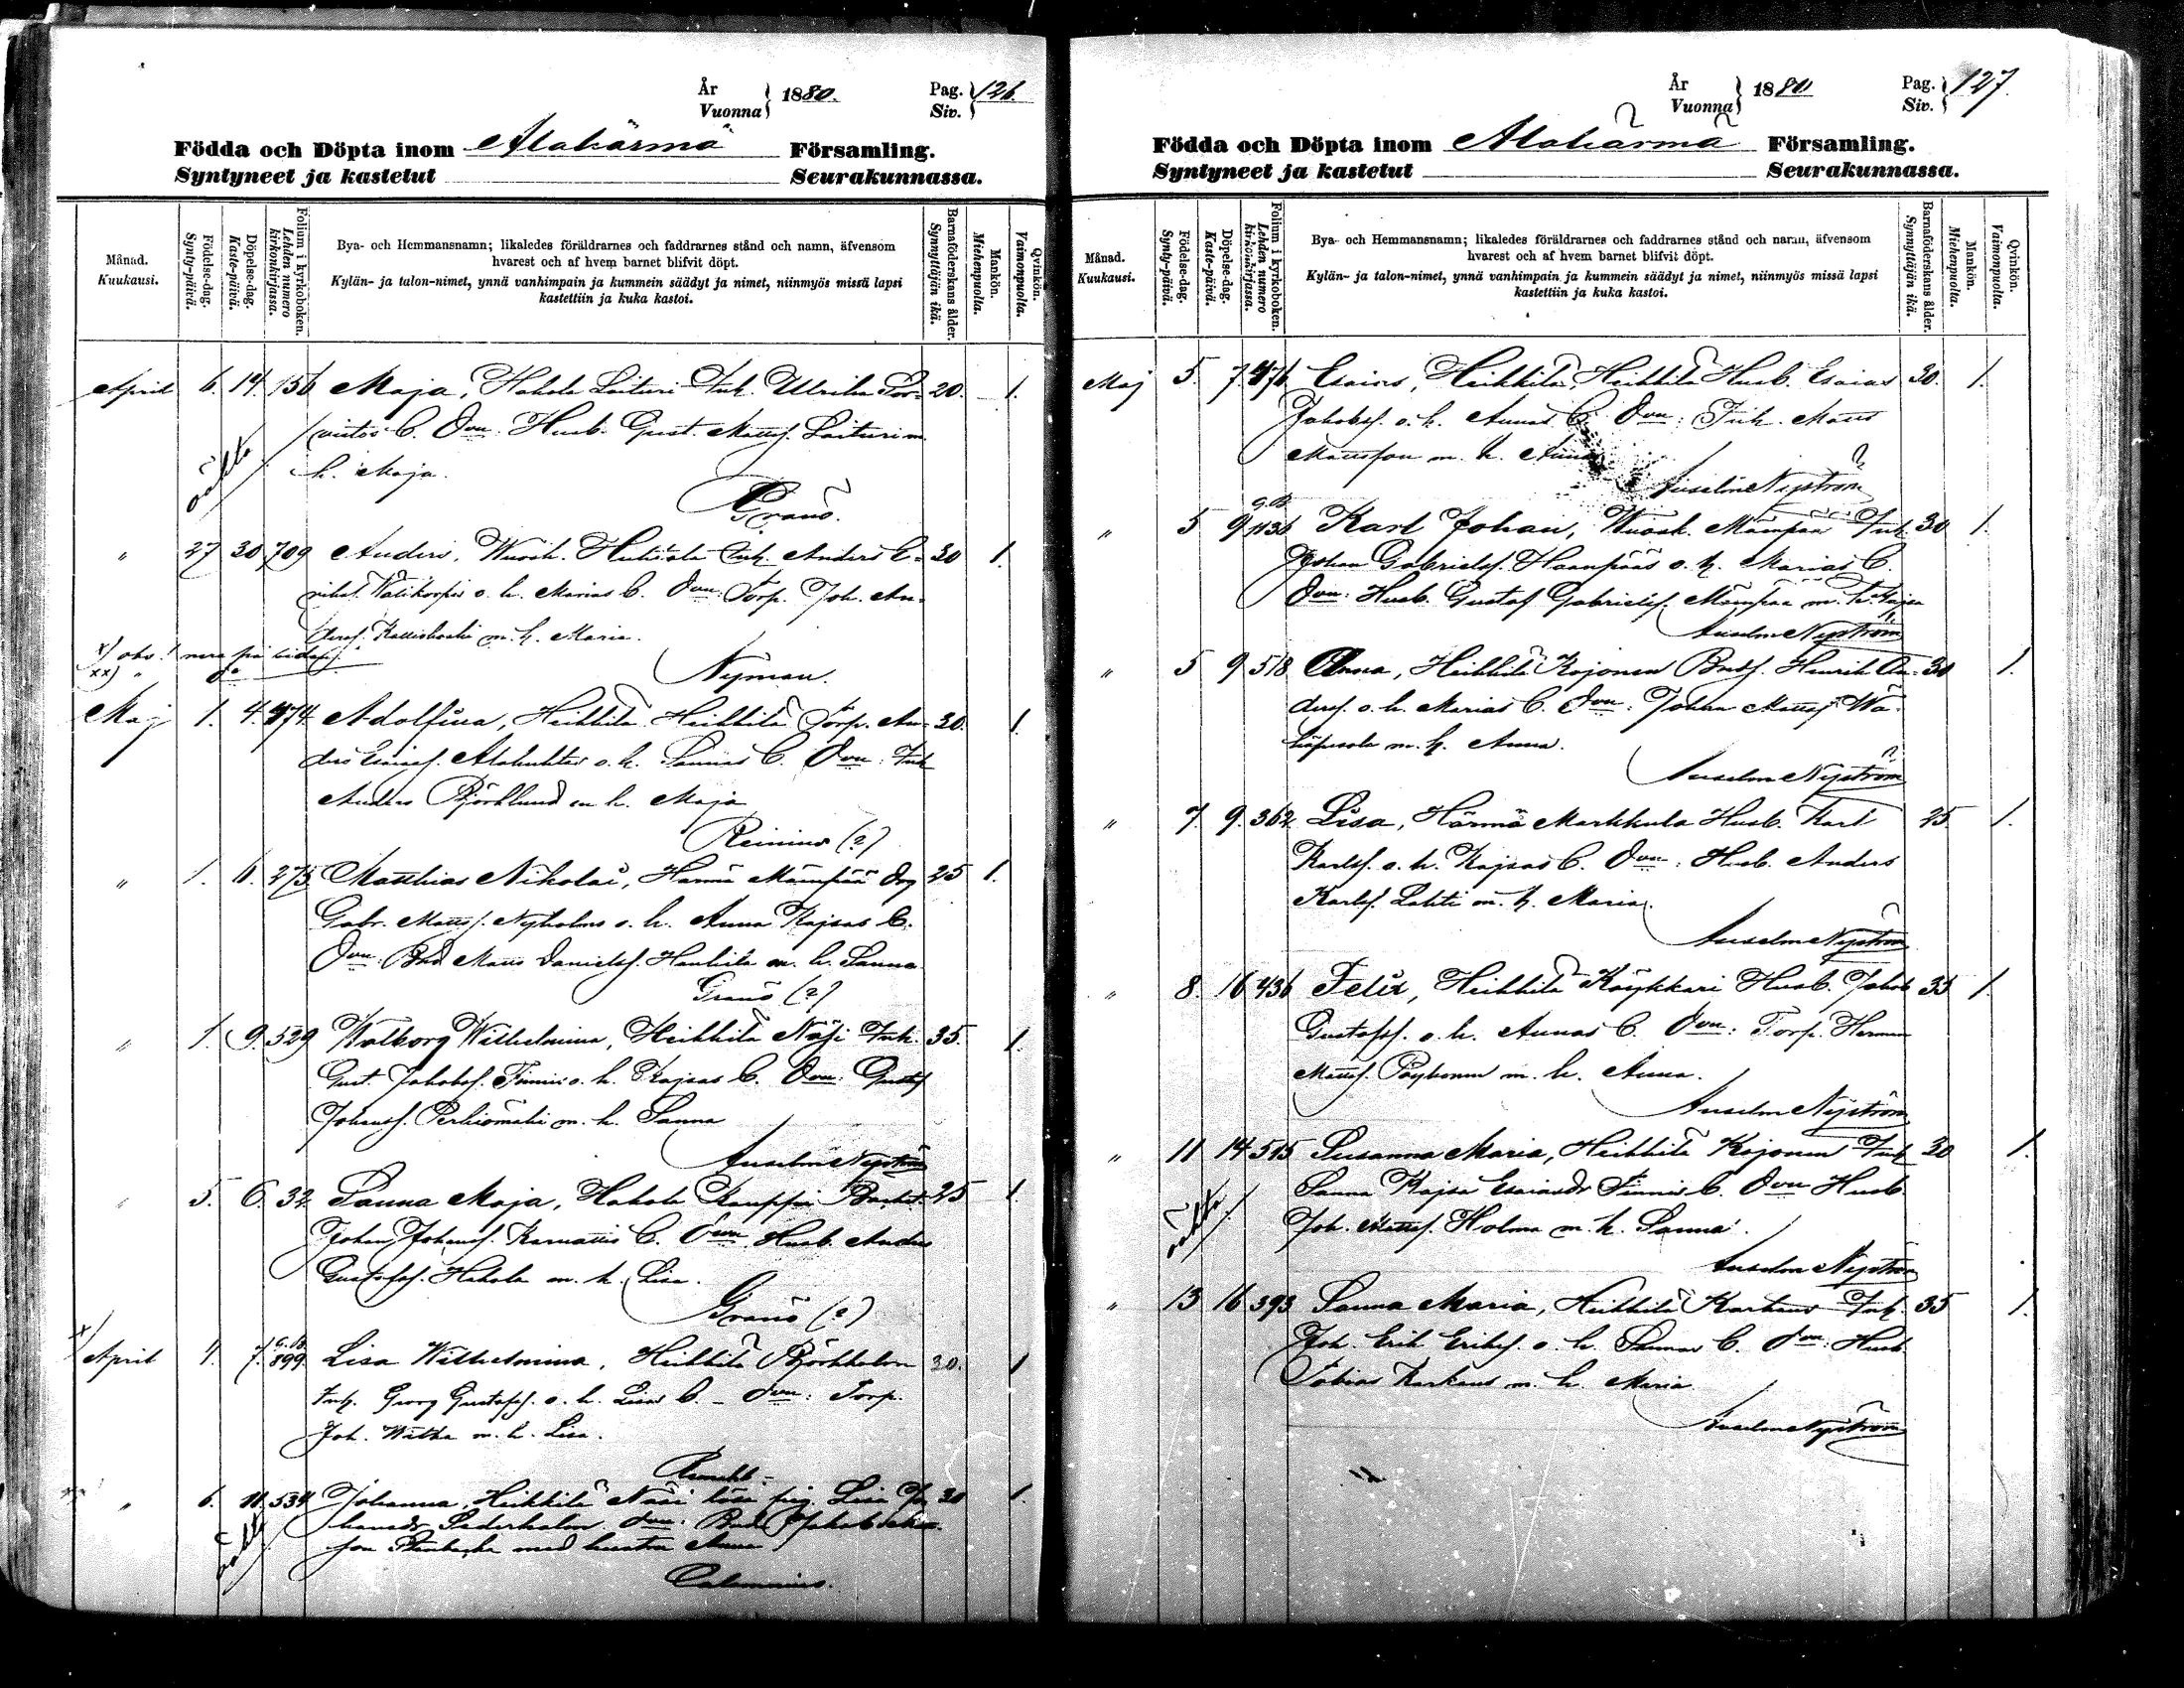 År
Vuonna } 1880.
Pag.
Siv. } 126.
Födda och Döpta inom Alahärmä Församling.
Syntyneet ja kastetut Seurakunnassa.
Månad.
Kuukausi.
Födelse-dag.
Synty-päivä.
Döpelse-dag.
Kaste-päivä.
Folium i kyrkoboken.
Lehden numero
kirkonkirjassa.
Bya- och Hemmansnamn; likaledes föräldrarnes och faddrarnes stånd och namn, äfvensom
hvarest och af hvem barnet blifvit döpt.
Kylän- ja talon-nimet, ynnä vanhimpain ja kummein säädyt ja nimet, niinmyös missä lapsi
kastettiin ja kuka kastoi.
Barnaföderskans ålder.
Synnyttäjän ikä.
Mankön.
Miehenpuolta.
Qvinkön.
Vaimonpuolta.
April 6. 14. 156 Maja, Hakola Laituri Inh. Ulrika 20. 1.
C. Dvn: Husb. Gust. Matts. Laituri m.
oäkta h. Maja.
Granö.
" 27 30 709 Anders, Wuosk. Inh. Anders E- 30 1.
o. h. Marias C. Dvn: Torp. Joh. An-
ders. m. h. Maria.
x) obs! nera på sidan.
xx) " do
Nyman.
Maj 1. 4. 474 Adolfina, Heikkilä Heikkilä Torp. An- 30. 1.
ders Esaias. o. h. Sannas C. Dvn: Inh
Anders Björklund m h. Maja
Reinius (?)
" 1. 6. 275 Matthias Nikolai, Härmä Mämpää Drg 25 1.
Gabr. Matts. Nyholms o. h. Anna Kajsas C.
Dvn: Bnd Matts Daniels. m. h. Sanna
Granö (?)
" 1. 9. 529 Walborg Wilhelmina, Heikkilä Näsi Inh. 35. 1.
Gust. Jakobs. Finnis o. h. Kajsas C. Dvn: Gustaf
Johans. Perkiömäki m. h. Sanna
Anselm Nyström
" 5. 6. 32 Sanna Maja, Hakola Kauppi 25 1.
Johan Johans. C. Dvn Husb. Anders
Gustafs. Hakola m. h. Lisa.
Granö (?)
x) April 4. 7. 899 Lisa Wilhelmina, Heikkilä Björkholm 30. 1
Inh. Georg Gustafs. o. h. Lisas C. - Dvn: Torp.
Joh. m. h. Lisa.
" 6. 11. 534 Johanna, Heikkilä Näsi lösa pig. Lisa Jo- 30 1.
oäkta hansdr Sederholm. Dvn: Bnd Jakob
son med hustru Anna
Calamnius.
År
Vuonna } 1880
Pag.
Siv. } 127.
Födda och Döpta inom Alahärmä Församling.
Syntyneet ja kastetut Seurakunnassa.
Månad.
Kuukausi.
Födelse-dag.
Synty-päivä.
Döpelse-dag.
Kaste-päivä.
Folium i kyrkoboken.
Lehden numero
kirkonkirjassa.
Bya- och Hemmansnamn; likaledes föräldrarnes och faddrarnes stånd och namn, äfvensom
hvarest och af hvem barnet blifvit döpt.
Kylän- ja talon-nimet, ynnä vanhimpain ja kummein säädyt ja nimet, niinmyös missä lapsi
kastettiin ja kuka kastoi.
Barnaföderskans ålder.
Synnyttäjän ikä.
Mankön.
Miehenpuolta.
Qvinkön.
Vaimonpuolta.
Maj 5. 7. 476 Esaias, Heikkilä, Heikkilä Husb. Esaias 30. 1.
Jakobs. o. h. Annas C. Dvn: Inh. Matts
Mattsson m. h. Anna
Anselm Nyström
" 5 9 1136 Karl Johan, Wuosk. Mämpää Inh. 30 1.
Johan Gabriels. Haanpääs o. h. Marias C.
Dvn: Husb. Gustaf Gabriels. Mämpää m. h. Kajsa
Anselm Nyström
" 5 9 518 Anna, Heikkilä Kojonen Bnds. Henrik An- 30 1.
ders. o. h. Marias C. Dvn: Johan Matts. Wä-
m. h. Anna.
Anselm Nyström
" 7. 9. 362 Lisa, Härmä Markkula Husb. Karl 25. 1.
Karls. o. h. Kajsas C. Dvn: Husb. Anders
Karls. Lahti m. h. Maria.
Anselm Nyström
" 8. 16 436 Felix, Heikkilä Köykkäri Husb. Jakob 35 1.
Gustafs. o. h. Annas C. Dvn: Torp. Herman
Matts. m. h. Anna.
Anselm Nyström
" 11 14 515 Susanna Maria, Heikkilä Kojonen Inh 20 1.
Sanna Kajsa Esaiasdr Finnis C. Dvn Husb.
oäkta Joh. Matts. Holma m. h. Sanna.
Anselm Nyström
" 13 16 393 Sanna Maria, Heikkilä Inh. 35 1.
Joh. Erik Eriks. o. h. Sannas C. Dvn: Husb
Tobias m. h. Maria
Anselm Nyström